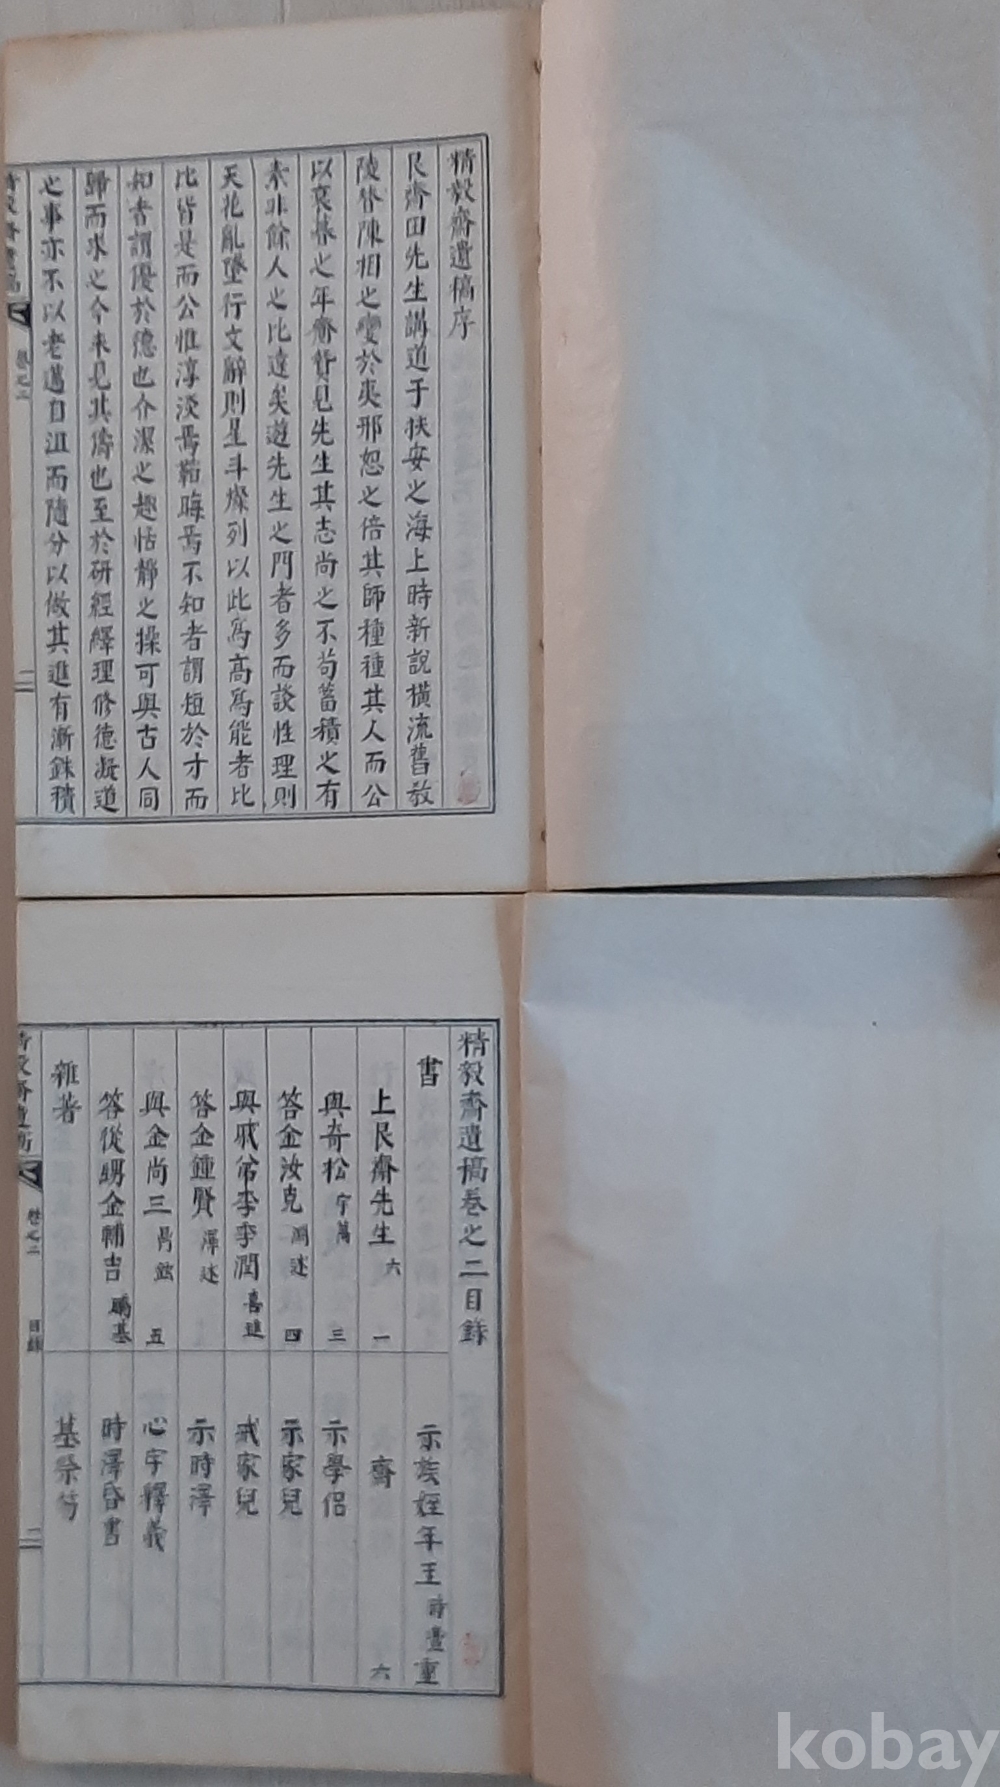 精毅齋遺稿序
艮齋田先生講道于扶安之海上時新說橫流舊敎
陵替陳相之變於夷邢恕之倍其師種種其人而公
以衰暮之年齎贄見先生其志尚之不苟蓄積之有
素非餘人之比遠矣遊先生之門者多而談性理則
天花亂墜行文辭則星斗燦列以此爲高爲能者比
比皆是而公惟淳淡焉韜晦焉不知者謂短於才而
知者謂優於德也介潔之趣恬靜之操可與古人同
歸而求之今來見其儔也至於硏經繹理修德凝道
之事亦不以老邁自沮而隨分以做其進有漸銖積
卷之二
二
精毅齋遺稿卷之二目錄
書
上艮齋先生 六 一
與奇松 宇萬 三
答金汝克 四
與戚爺李季潤 喜璡
答金鍾賢 澤述
與金尚三 五
答從甥金輔吉
雜著
示族姪年玉 時 重
齋 六
示學侶
示家兒
戒家兒
示時澤
心字釋義
時澤昏書
基祭
卷之二 目錄
二
kobay